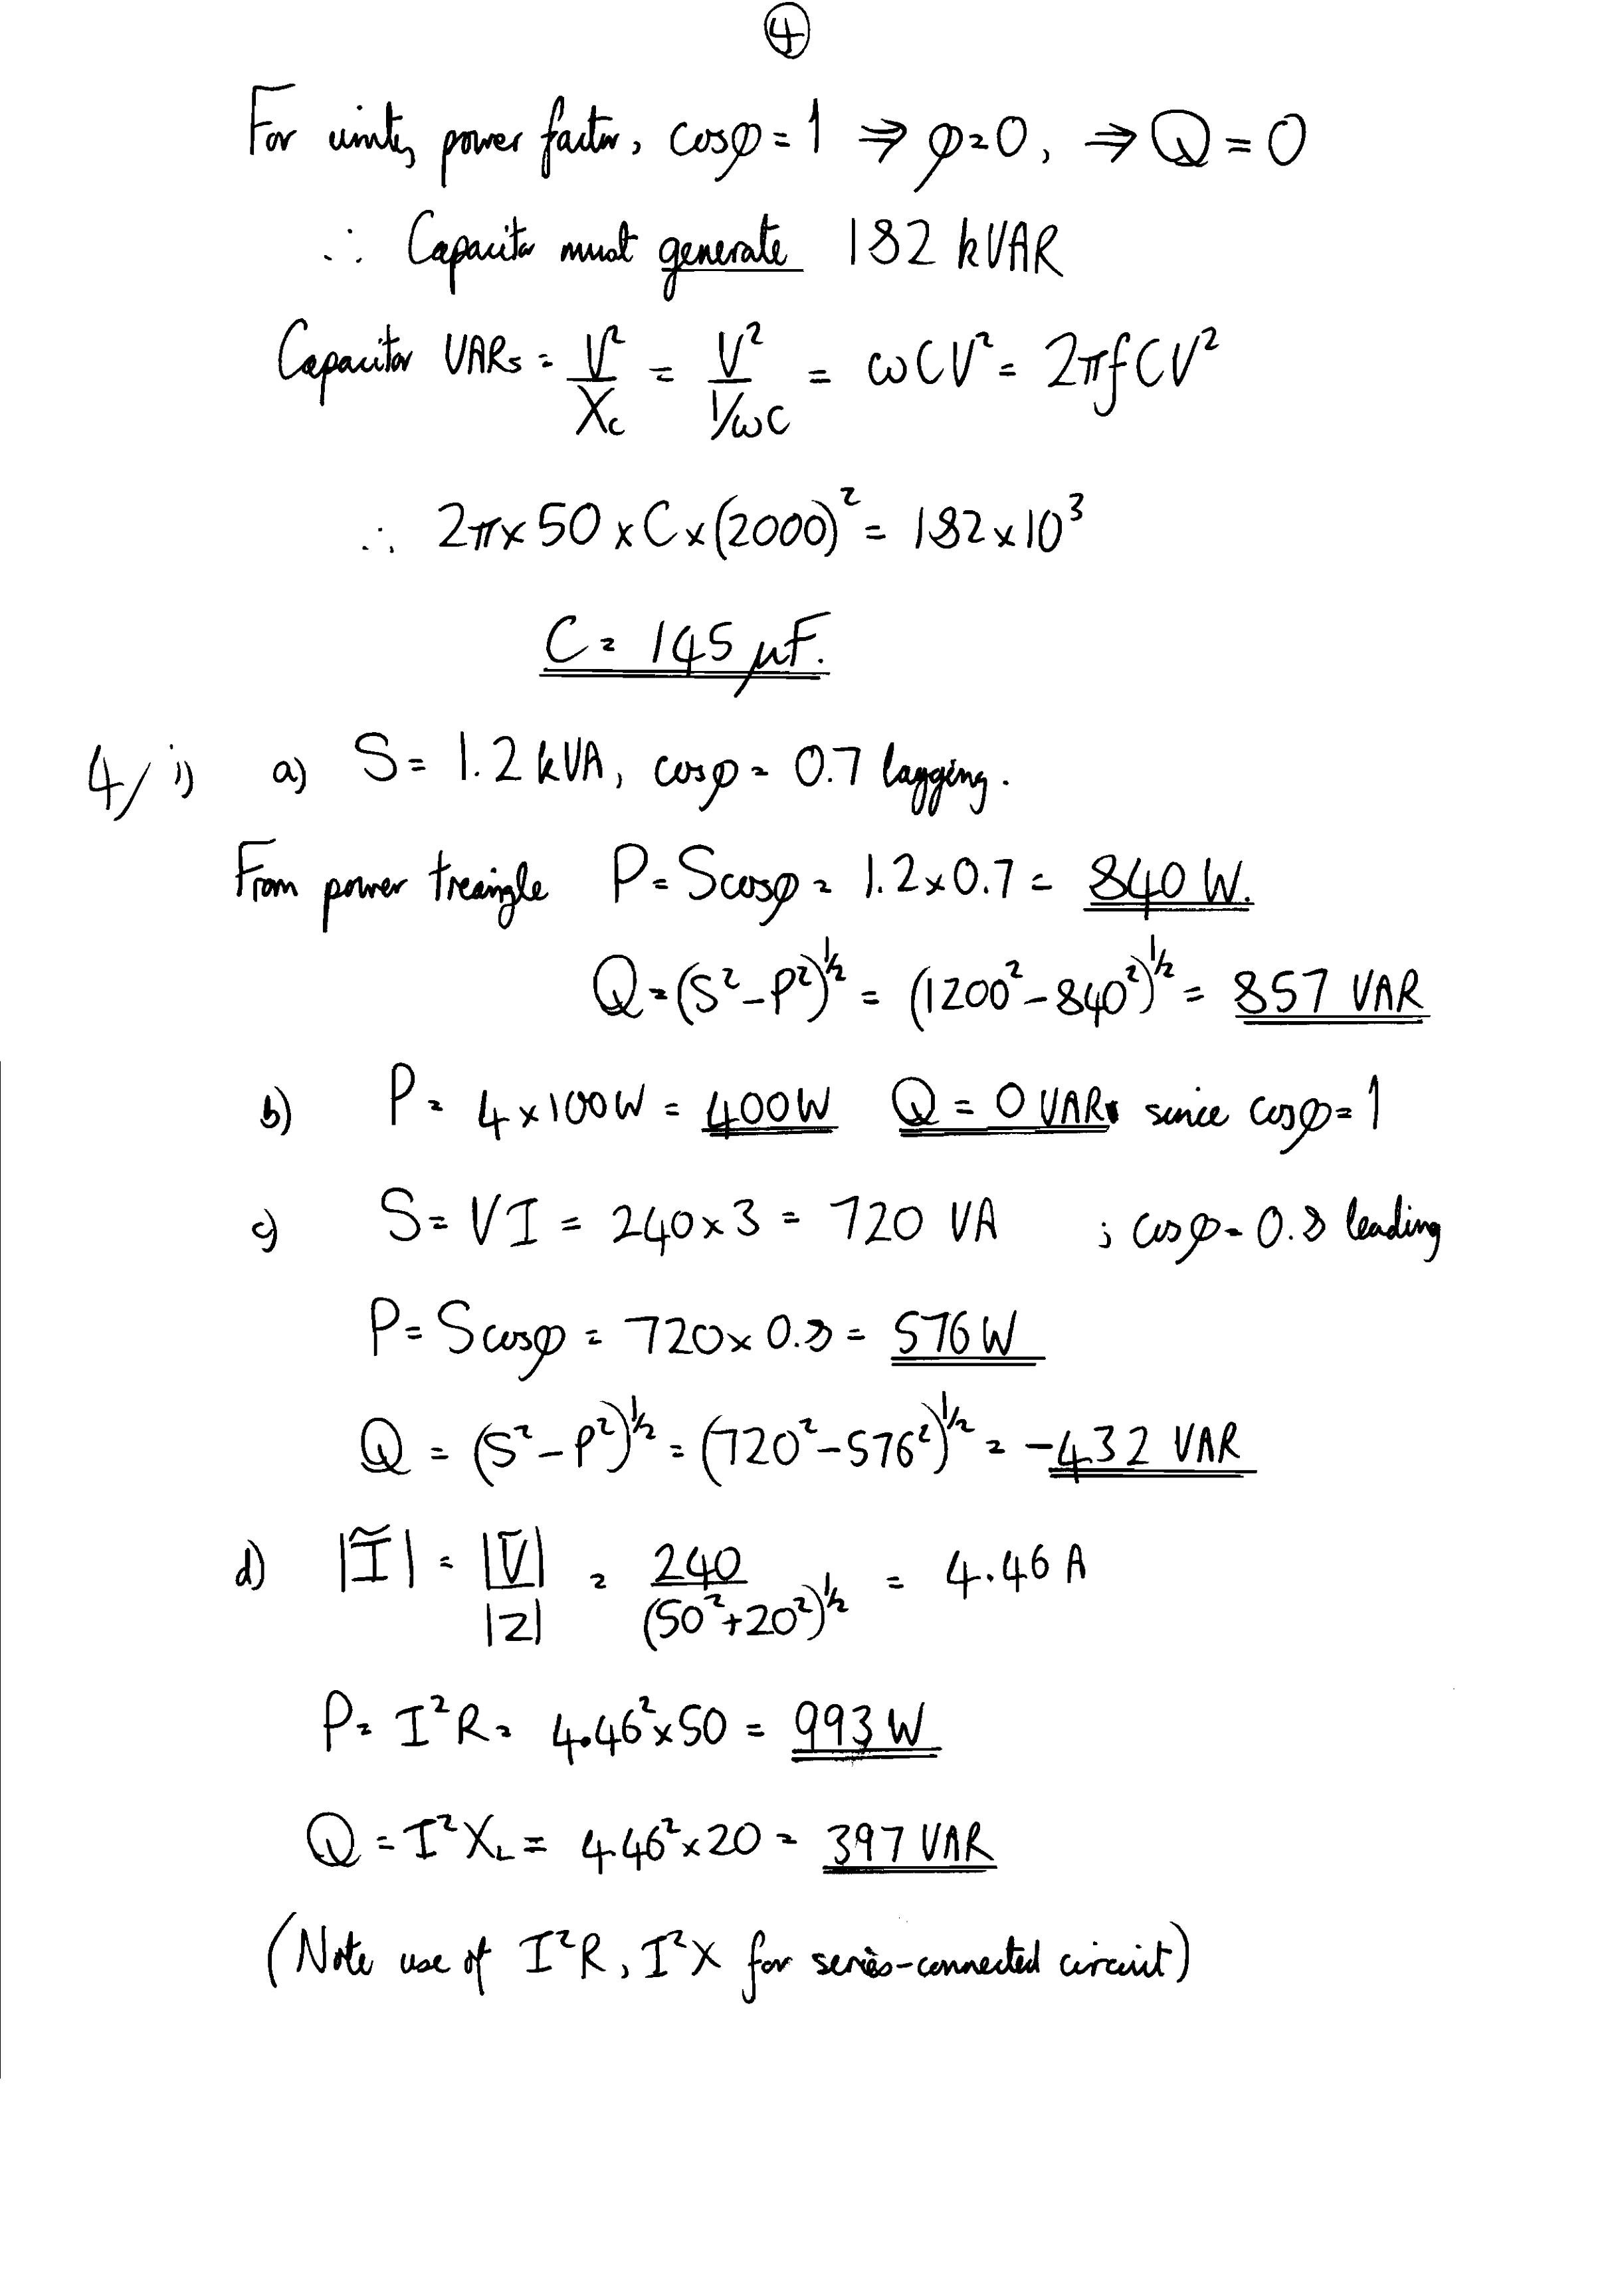 ④
For unity power factor, cosφ = 1 ⇒ φ = 0, ⇒ Q = 0
∴ Capacitor must generate 182 kVAR
Capacitor VARs = V²/Xc = V²/(1/ωC) = ωCV² = 2πfCV²
∴ 2π × 50 × C × (2000)² = 182 × 10³
C = 145 μF.
4/ i) a) S = 1.2 kVA, cosφ = 0.7 lagging.
From power treangle P = S cosφ = 1.2 × 0.7 = 840 W.
Q = (S² − P²)^½ = (1200² − 840²)^½ = 857 VAR
b) P = 4 × 100W = 400W Q = 0 VAR since cosφ = 1
c) S = VI = 240 × 3 = 720 VA ; cosφ = 0.8 leading
P = S cosφ = 720 × 0.8 = 576 W
Q = (S² − P²)^½ = (720² − 576²)^½ = −432 VAR
d) |Ĩ| = |Ṽ|/|Z| = 240/(50² + 20²)^½ = 4.46 A
P = I²R = 4.46² × 50 = 993 W
Q = I²X_L = 4.46² × 20 = 397 VAR
(Note use of I²R, I²X for series-connected circuit)